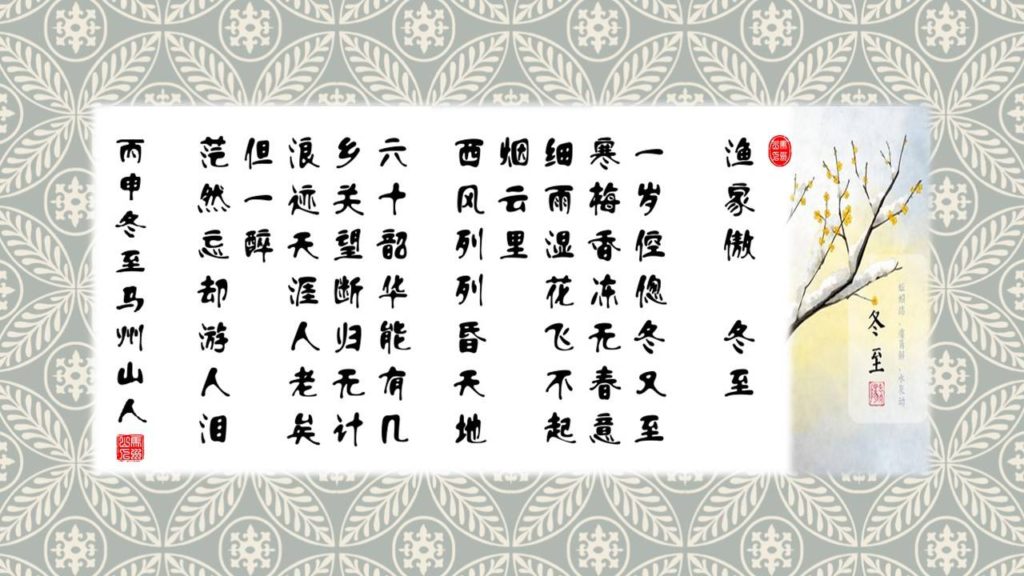 蚯蚓结·麋角解·水泉动
冬至
渔家傲 冬至
一岁倥偬冬又至
寒梅香冻无春意
细雨湿花飞不起
烟云里
西风列列昏天地
六十韶华能有几
乡关望断归无计
浪迹天涯人老矣
但一醉
茫然忘却游人泪
丙申冬至马州山人